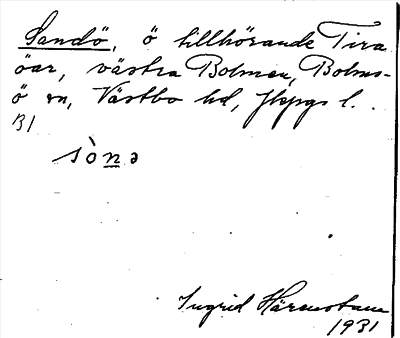 Sandö, ö tillhörande Tira
öar, västra Bolmen, Bolms-
ö sn, Västbo hd, Jkpgs l.
B1
sònə
Ingrid Härenstam
1931